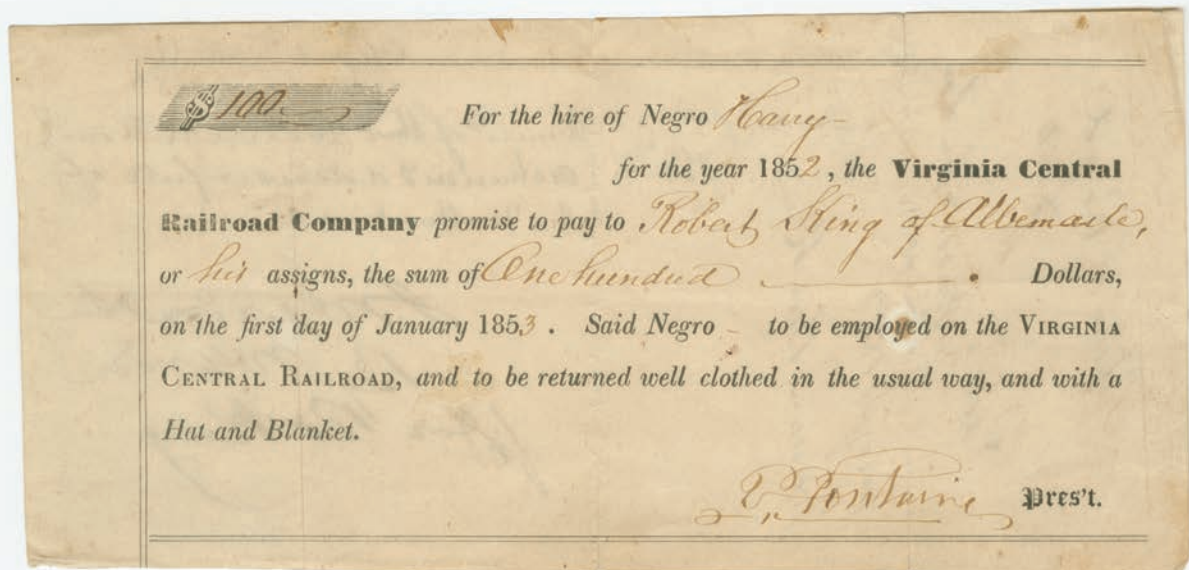 $ 100.
For the hire of Negro Harry
for the year 1852, the Virginia Central
Railroad Company promise to pay to Robert King of Albemarle,
or his assigns, the sum of One hundred ——. Dollars,
on the first day of January 1853. Said Negro - to be employed on the VIRGINIA
CENTRAL RAILROAD, and to be returned well clothed in the usual way, and with a
Hat and Blanket.
Fontaine Pres't.